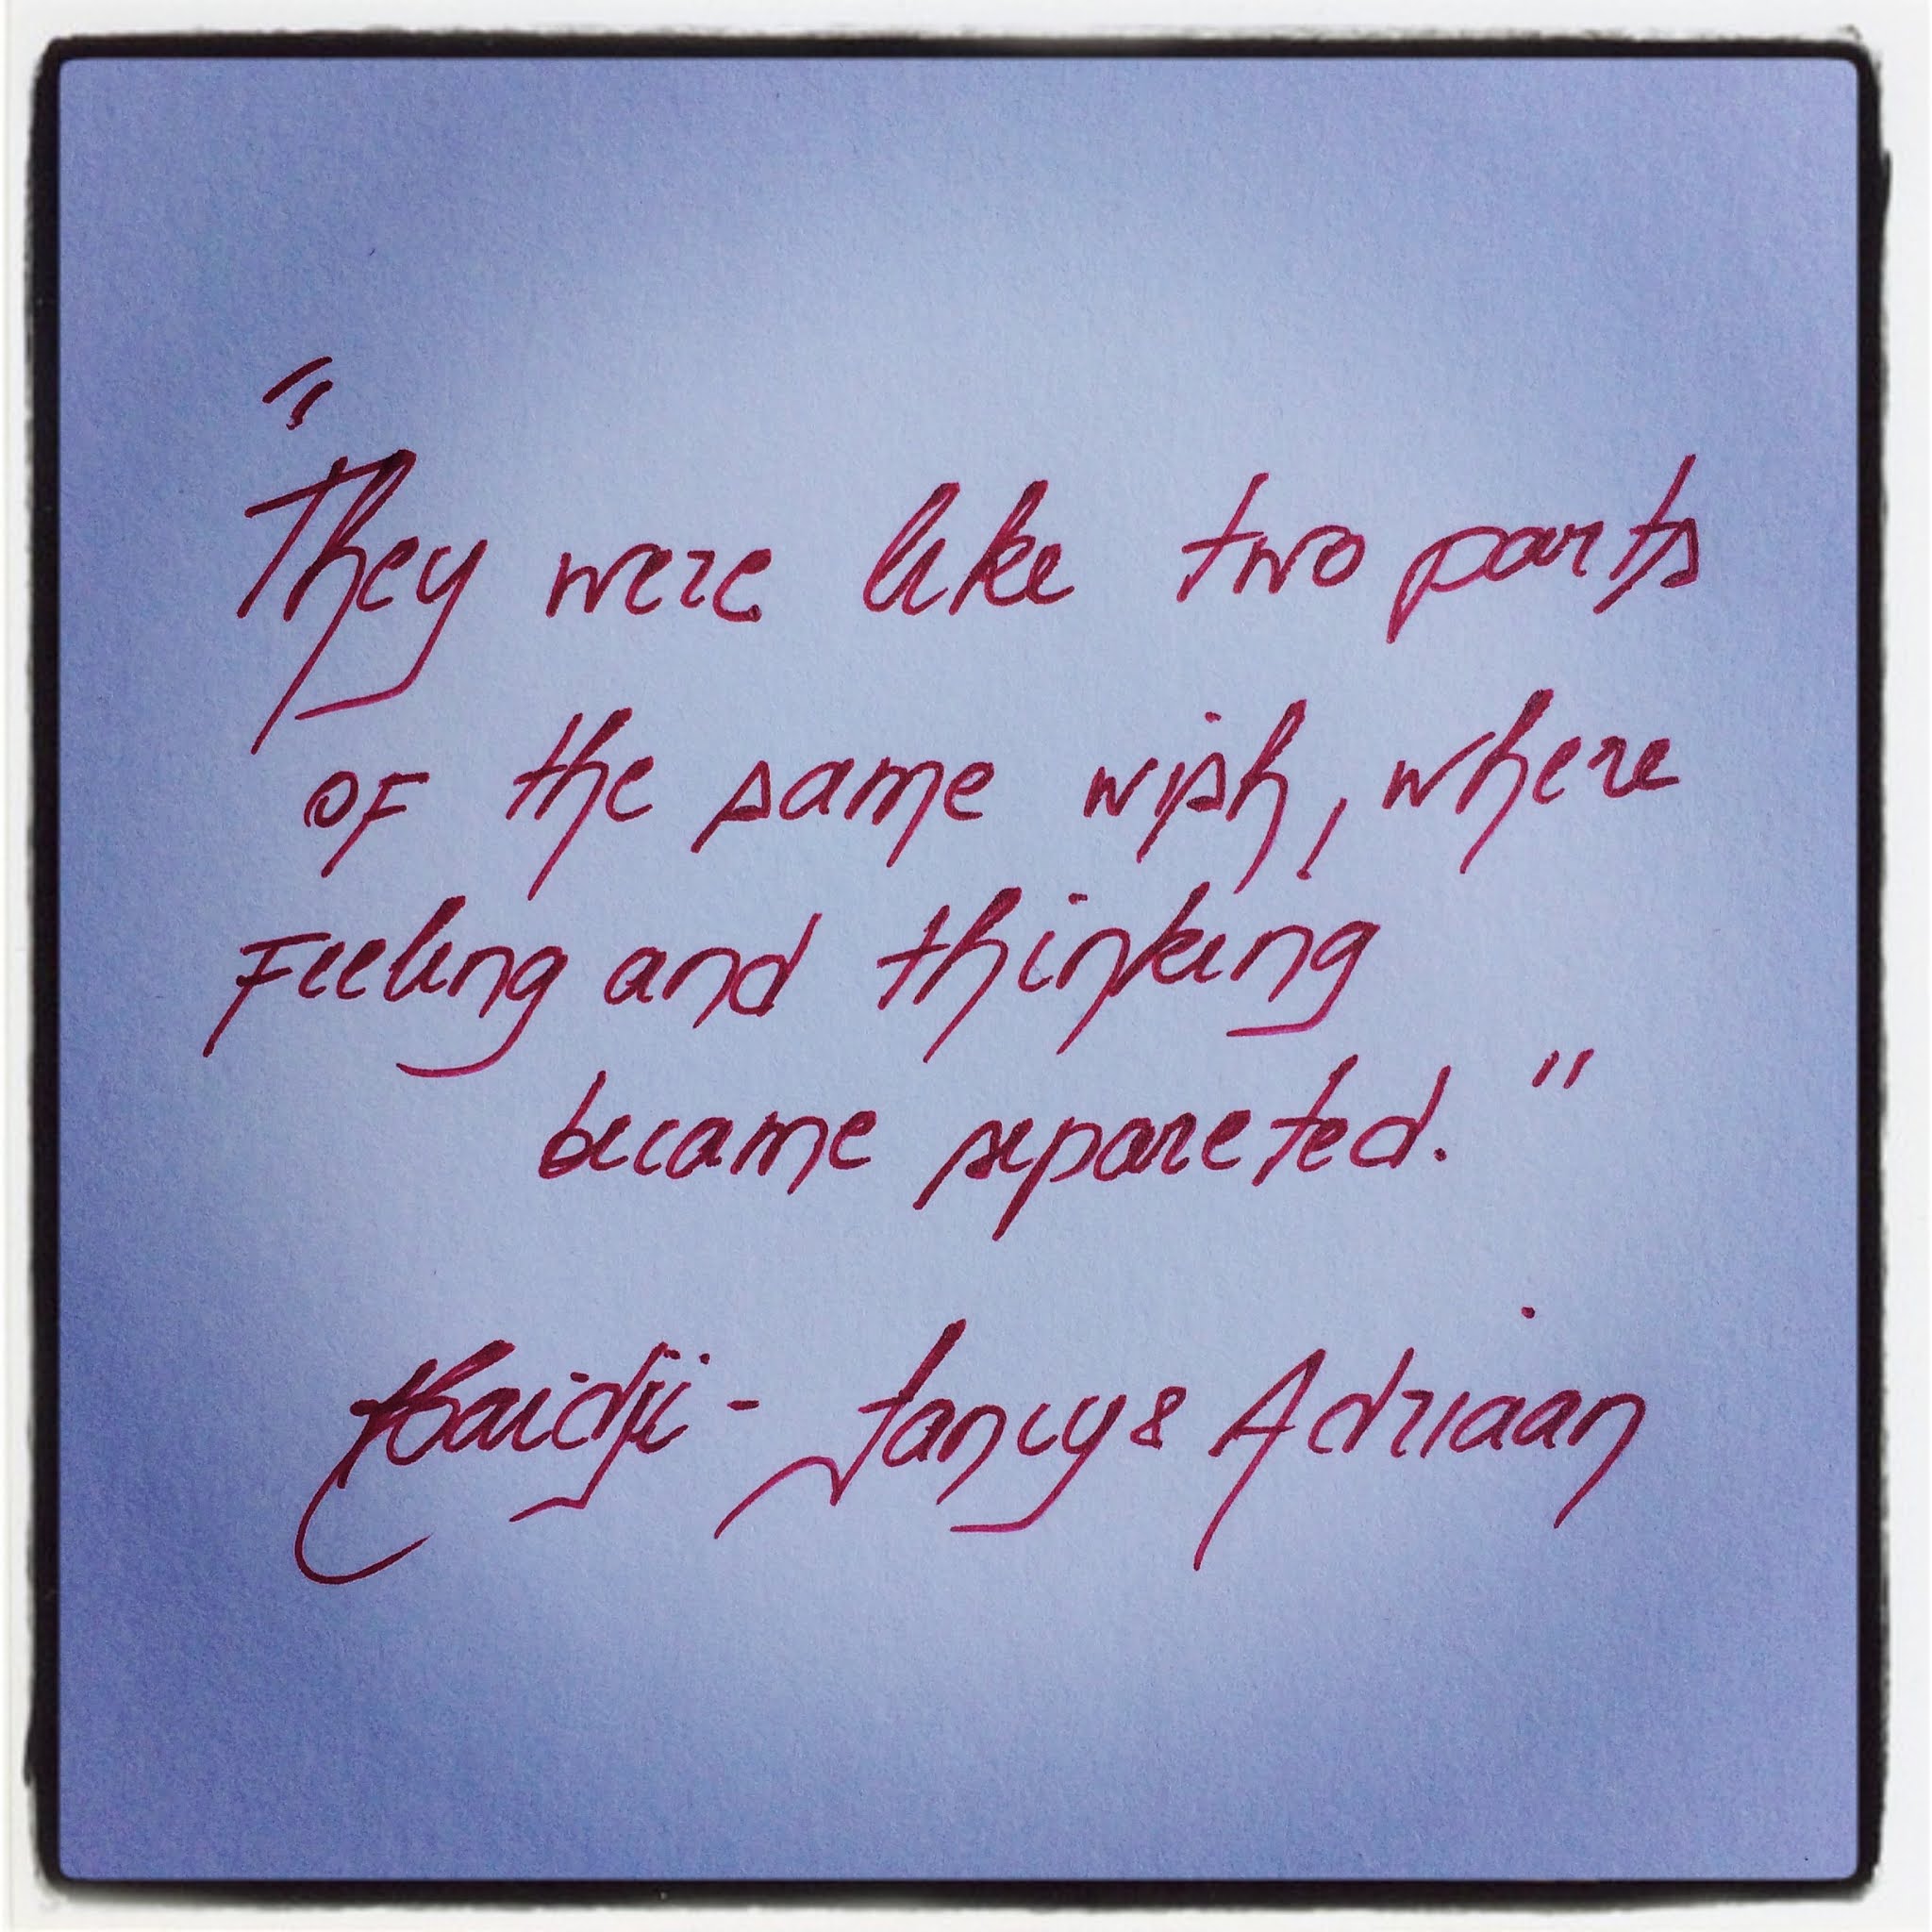 "
They were like two parts
of the same wish, where
Feeling and thinking
became separeted."
Haidji - Fancy & Adriaan